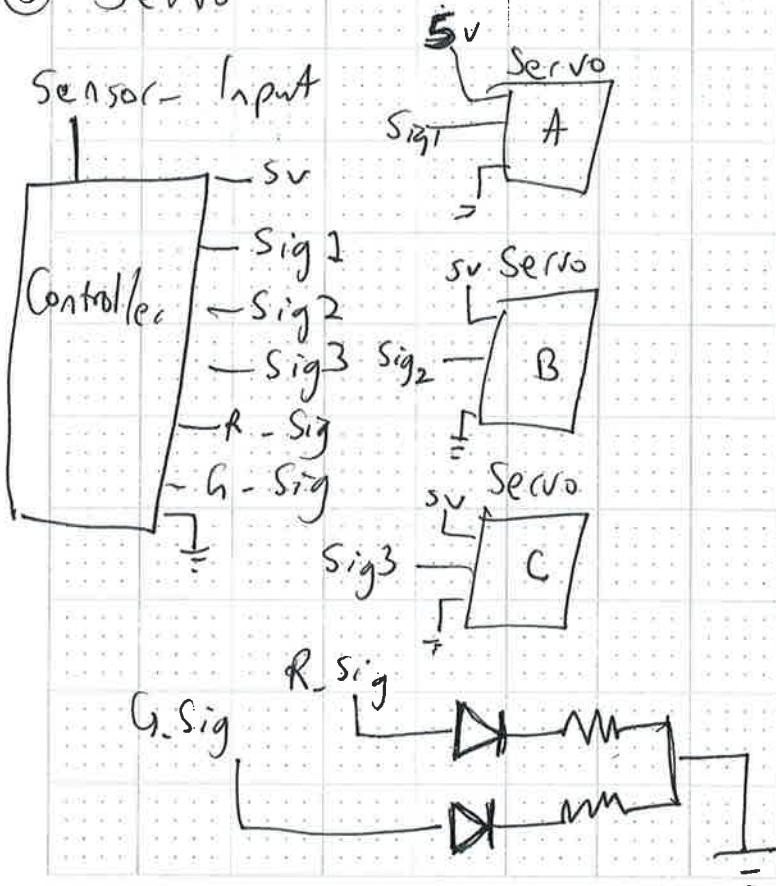 ③ Servo
Sensor_Input
Controller
5v
Sig 1
Sig 2
Sig 3
R_Sig
G_Sig
5v
Servo
Sig1
A
5v Servo
Sig2
B
5v Servo
Sig3
C
R_Sig
G_Sig